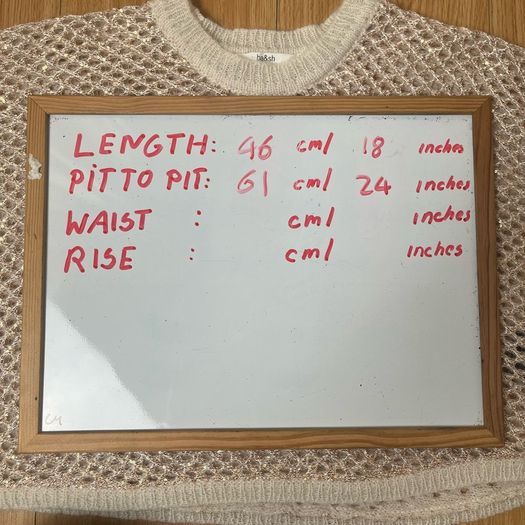 ba&sh
LENGTH: 46 cm/ 18 inches
PiT TO PIT: 61 cm/ 24 inches
WAIST : cm/ inches
RISE : cm/ inches